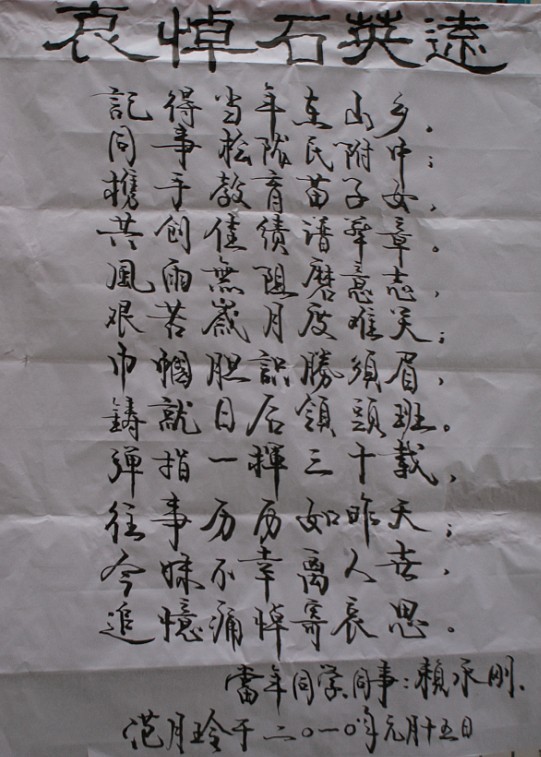 哀悼石英遠
記得当年东山乡。
同事松陂民附中；
携手教育苗子女，
共創佳績譜華章。
風雨無阻磨意志，
艰苦歲月度难关；
巾帼胆識勝須眉，
鑄就日后領頭班。
弹指一揮三十載，
往事历历如昨天；
今妹不幸离人世，
追憶痛悼寄哀思。
當年同学、同事：賴承刚、
范月玲于二〇一〇年元月十五日